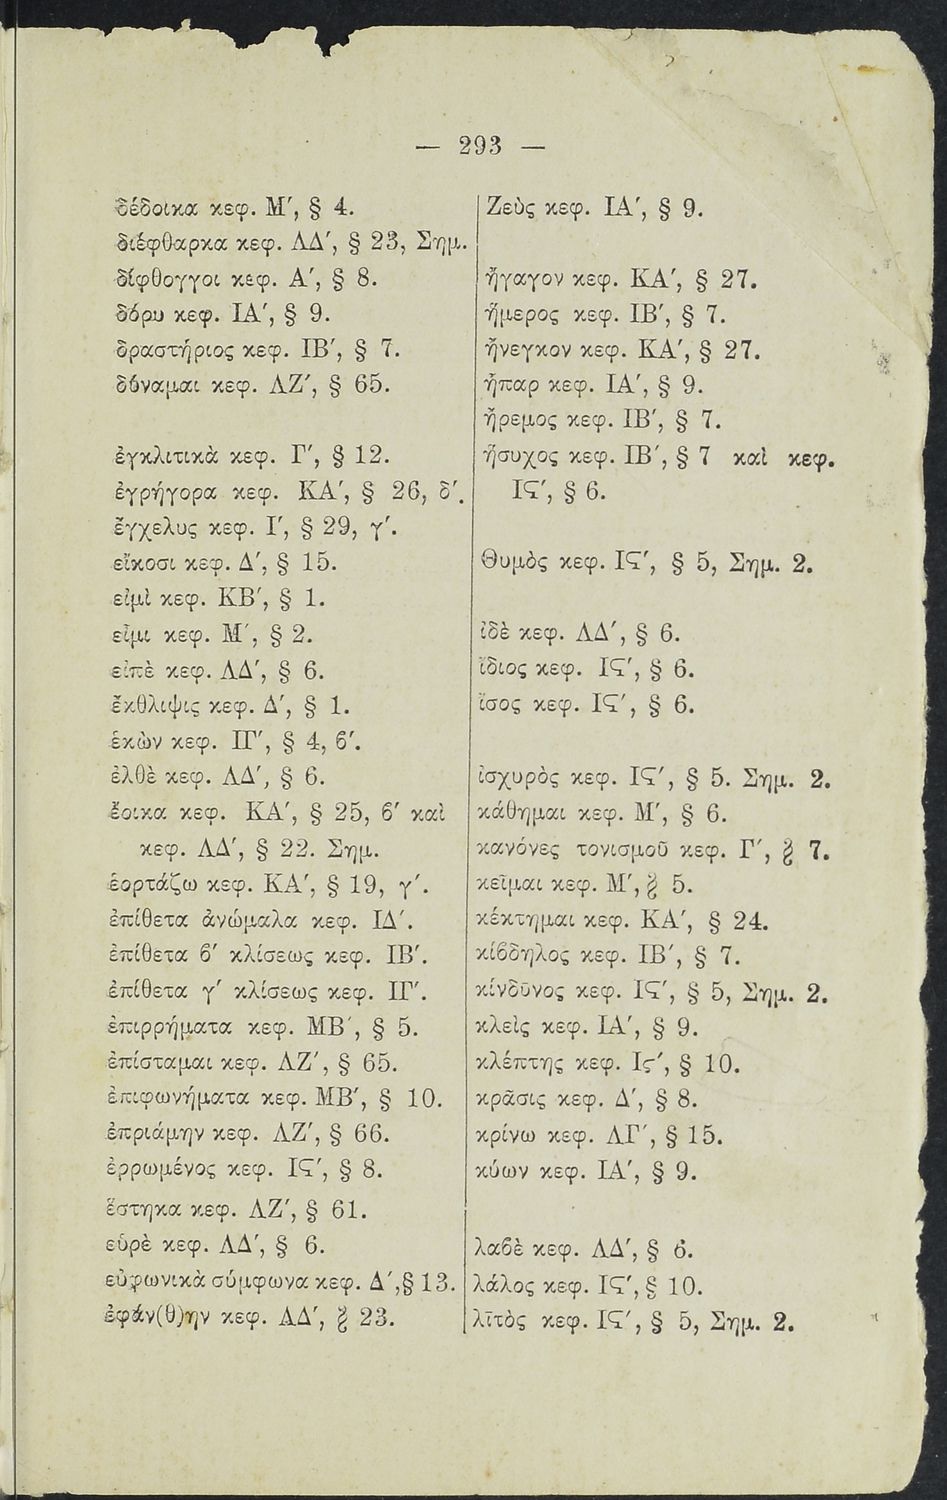 — 293 —
δέδοικα κεφ. Μ΄, § 4.
διέφθαρκα κεφ. ΛΔ΄, § 23, Σημ.
δίφθογγοι κεφ. Α΄, § 8.
δόρυ κεφ. ΙΑ΄, § 9.
δραστήριος κεφ. ΙΒ΄, § 7.
δύναμαι κεφ. ΛΖ΄, § 65.
ἐγκλιτικὰ κεφ. Γ΄, § 12.
ἐγρήγορα κεφ. ΚΑ΄, § 26, δ΄.
ἔγχελυς κεφ. Ι΄, § 29, γ΄.
εἴκοσι κεφ. Δ΄, § 15.
εἰμὶ κεφ. ΚΒ΄, § 1.
εἶμι κεφ. Μ΄, § 2.
εἰπὲ κεφ. ΛΔ΄, § 6.
ἔκθλιψις κεφ. Δ΄, § 1.
ἑκὼν κεφ. ΙΓ΄, § 4, ϐ΄.
ἐλθὲ κεφ. ΛΔ΄, § 6.
ἔοικα κεφ. ΚΑ΄, § 25, ϐ΄ καὶ
κεφ. ΛΔ΄, § 22. Σημ.
ἑορτάζω κεφ. ΚΑ΄, § 19, γ΄.
ἐπίθετα ἀνώμαλα κεφ. ΙΔ΄.
ἐπίθετα ϐ΄ κλίσεως κεφ. ΙΒ΄.
ἐπίθετα γ΄ κλίσεως κεφ. ΙΓ΄.
ἐπιρρήματα κεφ. ΜΒ΄, § 5.
ἐπίσταμαι κεφ. ΛΖ΄, § 65.
ἐπιφωνήματα κεφ. ΜΒ΄, § 10.
ἐπριάμην κεφ. ΛΖ΄, § 66.
ἐρρωμένος κεφ. ΙϚ΄, § 8.
ἕστηκα κεφ. ΛΖ΄, § 61.
εὑρὲ κεφ. ΛΔ΄, § 6.
εὐφωνικὰ σύμφωνα κεφ. Δ΄, § 13.
ἐφάν(θ)ην κεφ. ΛΔ΄, § 23.
Ζεὺς κεφ. ΙΑ΄, § 9.
ἤγαγον κεφ. ΚΑ΄, § 27.
ἥμερος κεφ. ΙΒ΄, § 7.
ἤνεγκον κεφ. ΚΑ΄, § 27.
ἧπαρ κεφ. ΙΑ΄, § 9.
ἤρεμος κεφ. ΙΒ΄, § 7.
ἥσυχος κεφ. ΙΒ΄, § 7 καὶ κεφ.
ΙϚ΄, § 6.
Θυμὸς κεφ. ΙϚ΄, § 5, Σημ. 2.
ἰδὲ κεφ. ΛΔ΄, § 6.
ἴδιος κεφ. ΙϚ΄, § 6.
ἴσος κεφ. ΙϚ΄, § 6.
ἰσχυρὸς κεφ. ΙϚ΄, § 5. Σημ. 2.
κάθημαι κεφ. Μ΄, § 6.
κανόνες τονισμοῦ κεφ. Γ΄, § 7.
κεῖμαι κεφ. Μ΄, § 5.
κέκτημαι κεφ. ΚΑ΄, § 24.
κίϐδηλος κεφ. ΙΒ΄, § 7.
κίνδῡνος κεφ. ΙϚ΄, § 5, Σημ. 2.
κλεὶς κεφ. ΙΑ΄, § 9.
κλέπτης κεφ. Ις΄, § 10.
κρᾶσις κεφ. Δ΄, § 8.
κρίνω κεφ. ΛΓ΄, § 15.
κύων κεφ. ΙΑ΄, § 9.
λαϐὲ κεφ. ΛΔ΄, § 6.
λάλος κεφ. ΙϚ΄, § 10.
λῑτὸς κεφ. ΙϚ΄, § 5, Σημ. 2.